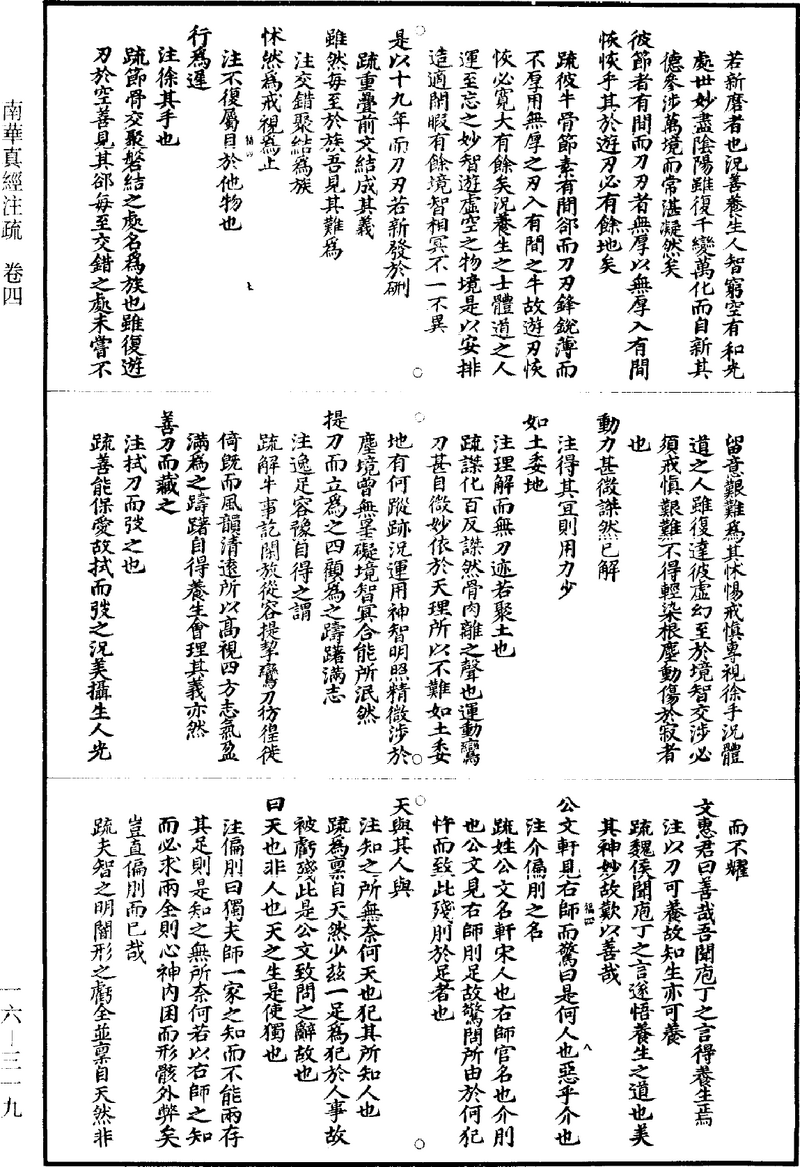 南華真經注疏　卷四
若新磨者也況善養生人智窮空有和光
處世妙盡陰陽雖復千變萬化而自新其
德參涉萬境而常湛凝然矣
彼節者有間而刀刃者無厚以無厚入有間
恢恢乎其於遊刃必有餘地矣
疏彼牛骨節素有間郤而刀刃鋒銳薄而
不厚用無厚之刃入有間之牛故遊刃恢
恢必寬大有餘矣況養生之士體道之人
運至忘之妙智遊虛空之物境是以安排
造適閑暇有餘境智相冥不一不異
是以十九年而刀刃若新發於硎
疏重疊前文結成其義
雖然每至於族吾見其難為
注交錯聚結為族
怵然為戒視為止
注不復屬目於他物也
行為遲
注徐其手也
疏節骨交聚磐結之處名為族也雖復遊
刃於空善見其郤每至交錯之處未嘗不
留意艱難為其怵惕戒慎專視徐手況體
道之人雖復達彼虛幻至於境智交涉必
須戒慎艱難不得輕染根塵動傷於寂者
也
動刀甚微謋然已解
注得其宜則用力少
如土委地
注理解而無刀迹若聚土也
疏謋化百反謋然骨肉離之聲也運動鸞
刀甚自微妙依於天理所以不難如土委
地有何蹤跡況運用神智明照精微涉於
塵境曾無罣礙境智冥合能所泯然
提刀而立為之四顧為之躊躇滿志
注逸足容豫自得之謂
疏解牛事訖閑放從容提挈鸞刀彷徨徙
倚既而風韻清遠所以高視四方志氣盈
滿為之躊躇自得養生會理其義亦然
善刀而藏之
注拭刀而弢之也
疏善能保愛故拭而弢之況美攝生人光
而不耀
文惠君曰善哉吾聞庖丁之言得養生焉
注以刀可養故知生亦可養
疏魏侯聞庖丁之言遂悟養生之道也美
其神妙故歎以善哉
公文軒見右師而驚曰是何人也惡乎介也
注介偏刖之名
疏姓公文名軒宋人也右師官名也介刖
也公文見右師刖足故驚問所由於何犯
忤而致此殘刖於足者也
天與其人與
注知之所無奈何天也犯其所知人也
疏為稟自天然少茲一足為犯於人事故
被虧殘此是公文致問之辭故也
曰天也非人也天之生是使獨也
注偏刖曰獨夫師一家之知而不能兩存
其足則是知之無所奈何若以右師之知
而必求兩全則心神內困而形骸外弊矣
豈直偏刖而已哉
疏夫智之明闇形之虧全並稟自天然非
一六—三一九